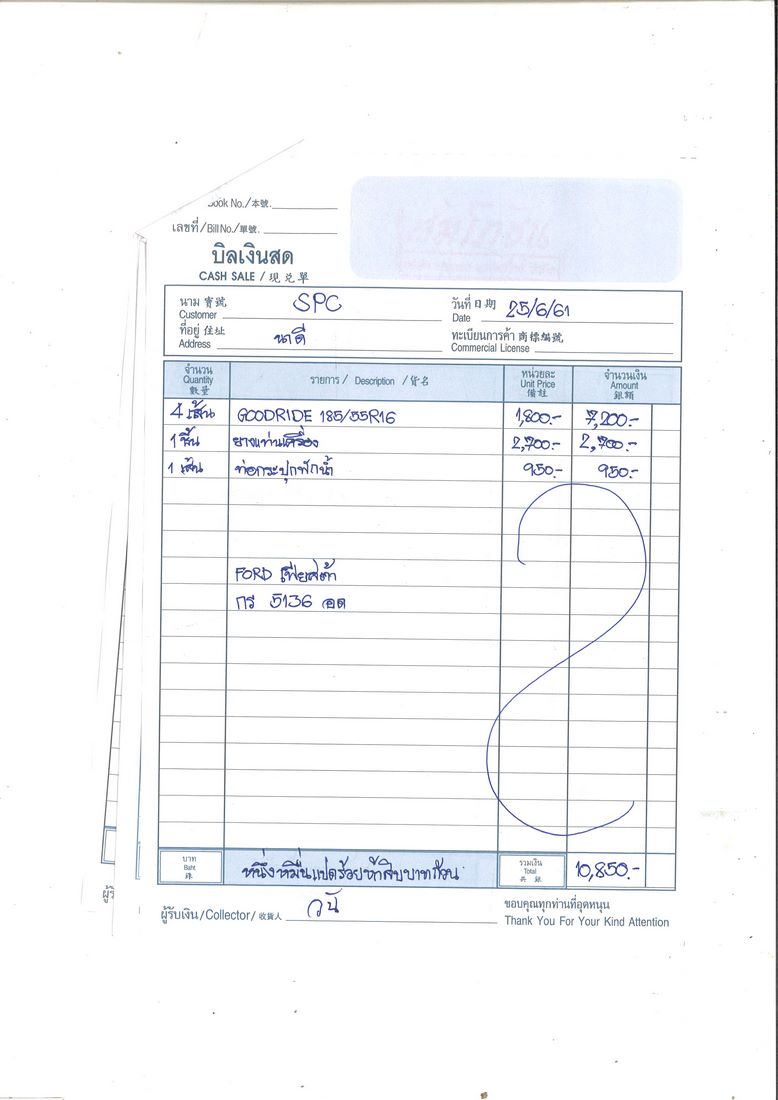 Book No./本號.
เลขที่/Bill No./單號.
บิลเงินสด
CASH SALE / 現兌單
นาม 寶號 SPC วันที่ 日期 25/6/61
Customer Date
ที่อยู่ 住址 นาดี ทะเบียนการค้า 商標編號
Address Commercial License
จำนวน รายการ / Description / 貨名 หน่วยละ จำนวนเงิน
Quantity Unit Price Amount
數量 備註 銀額
4 เส้น GOODRIDE 185/55R16 1,800.- 7,200.-
1 ชิ้น ยางแท่นเครื่อง 2,700.- 2,700.-
1 เส้น ท่อกระปุกพักน้ำ 950.- 950.-
FORD เฟียสต้า
กร 5136 อด
บาท หนึ่งหมื่นแปดร้อยห้าสิบบาทถ้วน รวมเงิน 10,850.-
Baht Total
銖 共銀
ผู้รับเงิน/Collector/收貨人 วนั ขอบคุณทุกท่านที่อุดหนุน
Thank You For Your Kind Attention